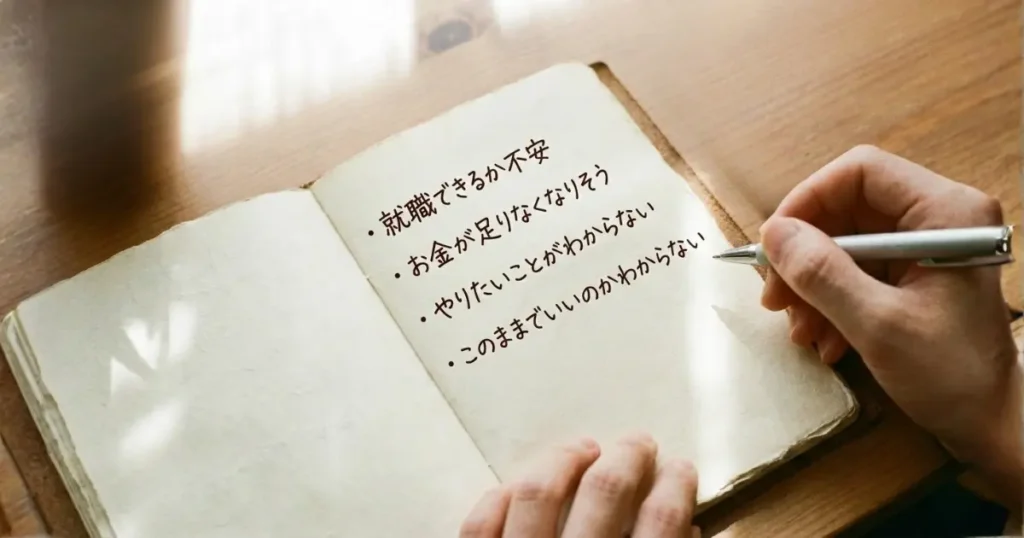 ・就職できるか不安
・お金が足りなくなりそう
・やりたいことがわからない
・このままでいいのかわからない